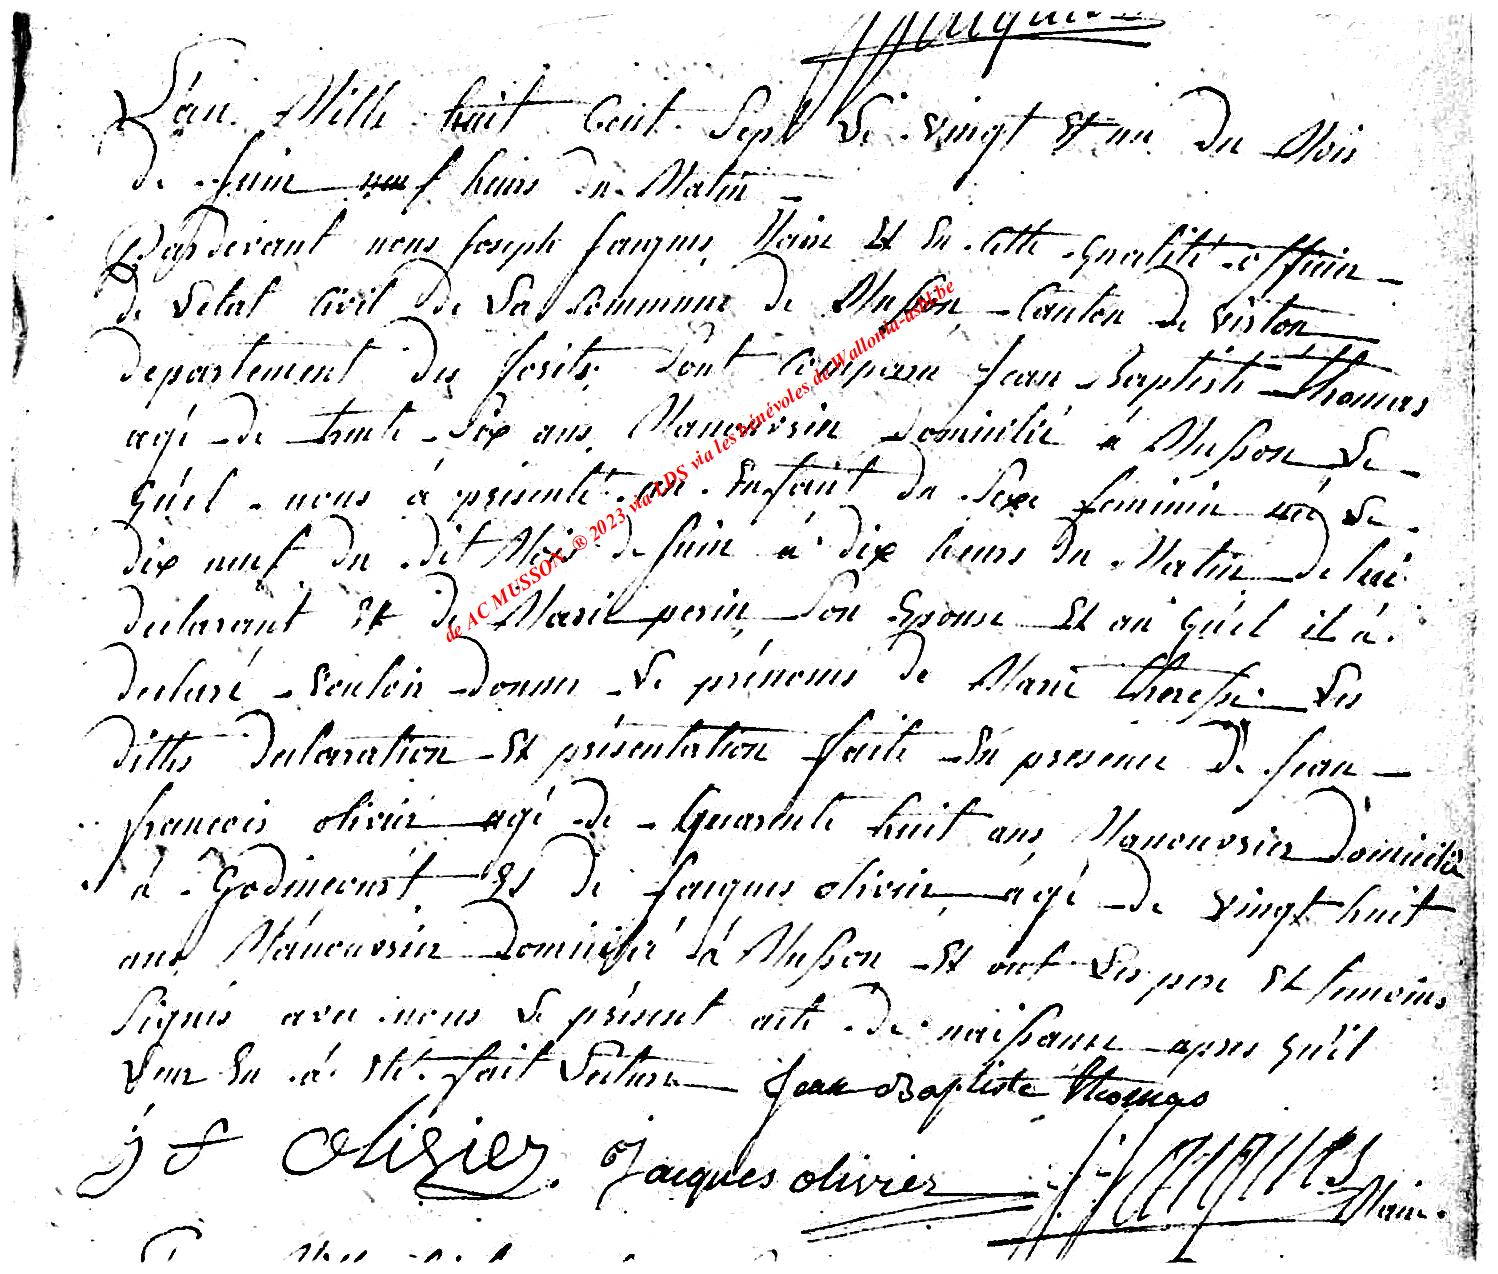 L'an Mille huit Cent Sept Le vingt Et un du Mois
de Juin neuf heures du Matin
Pardevant nous Joseph Jacques Maire Et En cette qualité officier
de L'etat Civil de La Commune de Musson Canton de virton
departement des forêts Sont Comparu Jean Baptiste Thomas
agé de trente Six ans, Manouvrier domicilié à Musson Le
quel nous à présenté un Enfant du Sexe feminin née Le
dix neuf du dit Mois de Juin à dix heures du Matin de lui
declarant Et de Marie perin Son Epouse Et au quel il à
declaré vouloir donner Le prénoms de Marie therese Les
dittes declaration Et présentation faite En presence de Jean
françois olivier agé de Quarente huit ans Manouvrier domicilié
à Godincourt Et de Jacques olivier agé de vingt huit
ans Manouvrier domicilié à Musson Et ont Les pere Et temoins
Signés avec nous Le présent acte de naissance apres qu'il
Leur En à Eté fait Lecture Jean Baptiste thomas
J f olivier Jacques olivier J J Jacques
Maire
de AC MUSSON ® 2023 via LDS via les bénévoles de Wallonia-asbl.be